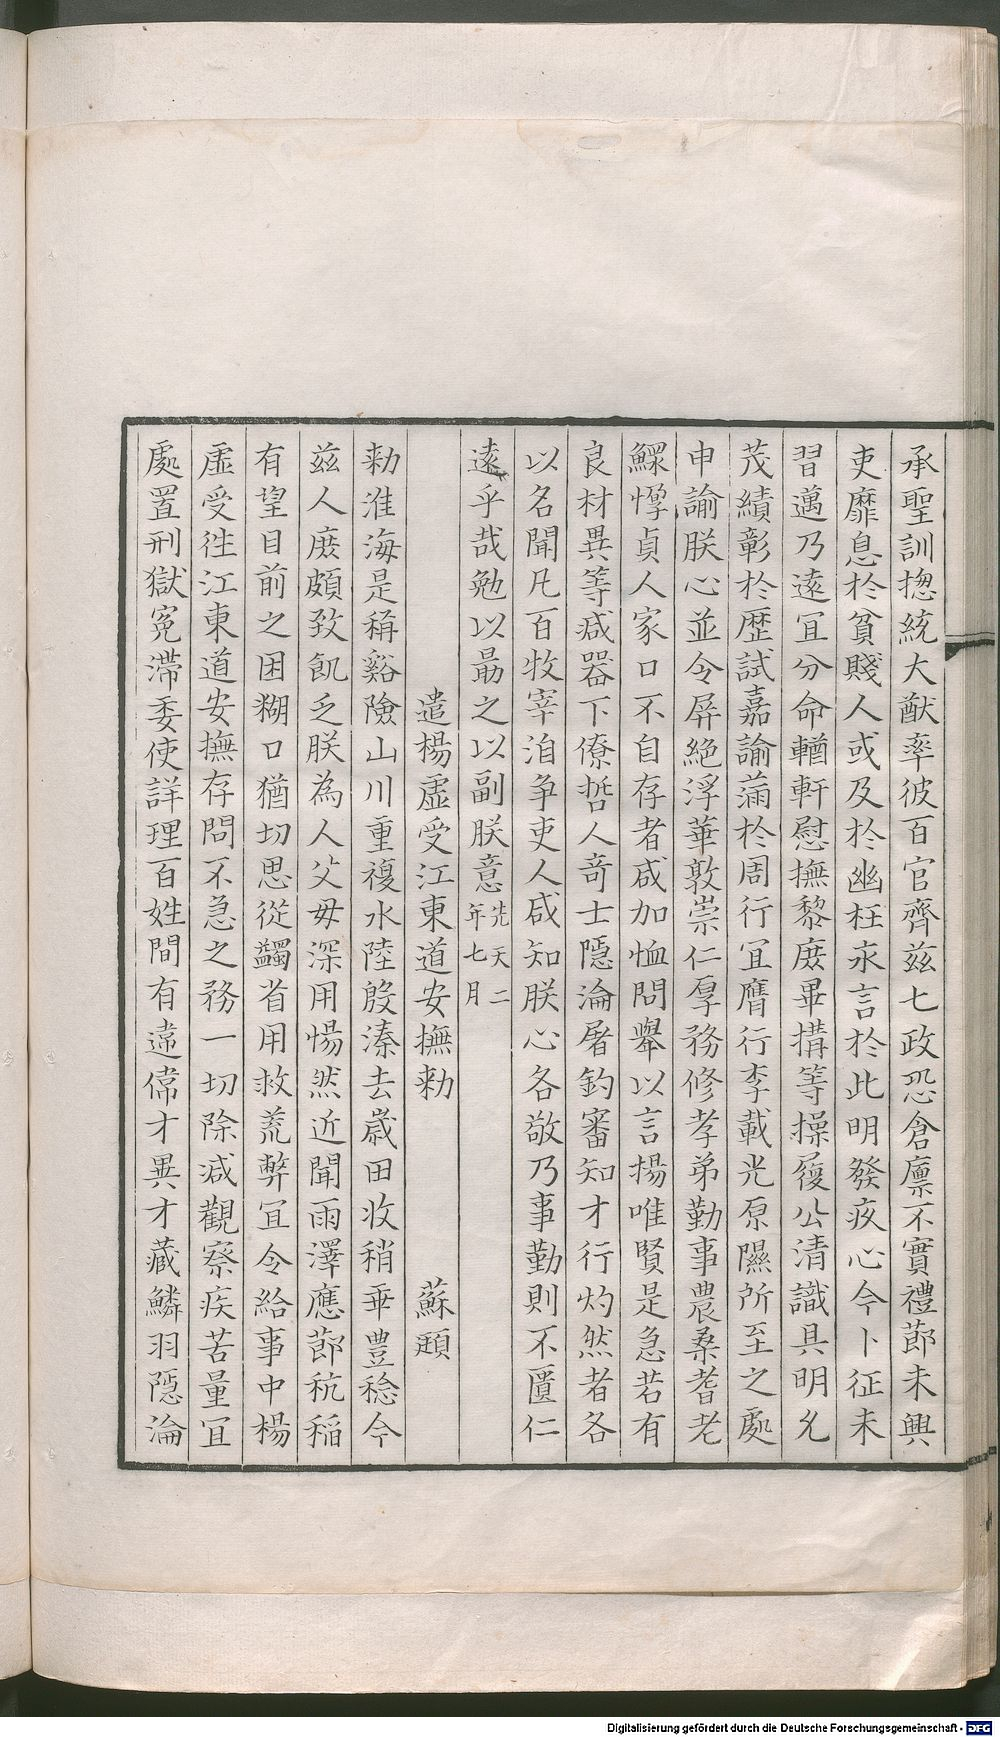 承聖訓揔統大猷率彼百官齊茲七政恐倉廪不實禮莭未興
吏靡息於貧賤人或及於幽枉永言於此明發疚心今卜征未
習邁乃遠宜分命輶軒慰撫黎庻畢搆等操履公清識具明允
茂績彰於歴試嘉諭滿於周行宜膺行李載光原隰所至之處
申諭朕心並令屏絶浮華敦崇仁厚務修孝弟勤事農桑耆老
鰥惸貞人家口不自存者咸加恤問舉以言揚唯賢是急若有
良材異等咸器下僚哲人竒士隱淪屠釣審知才行灼然者各
以名聞凡百牧宰洎争吏人咸知朕心各敬乃事勤則不匱仁
遠乎哉勉以勗之以副朕意先天二年七月
遣楊虚受江東道安撫勑　蘇頲
勑淮海是稱谿險山川重複水陸殷湊去歲田收稍乖豊稔今
茲人庻頗致飢乏朕為人父毋深用惕然近聞雨澤應莭秔稲
有望目前之困糊口猶切思從蠲省用救荒弊宜令給事中楊
虚受徃江東道安撫存問不急之務一切除减觀察疾苦量冝
處置刑獄冤滯委使詳理百姓間有遠僃才異才藏鱗羽隱淪
Digitalisierung gefördert durch die Deutsche Forschungsgemeinschaft - DFG